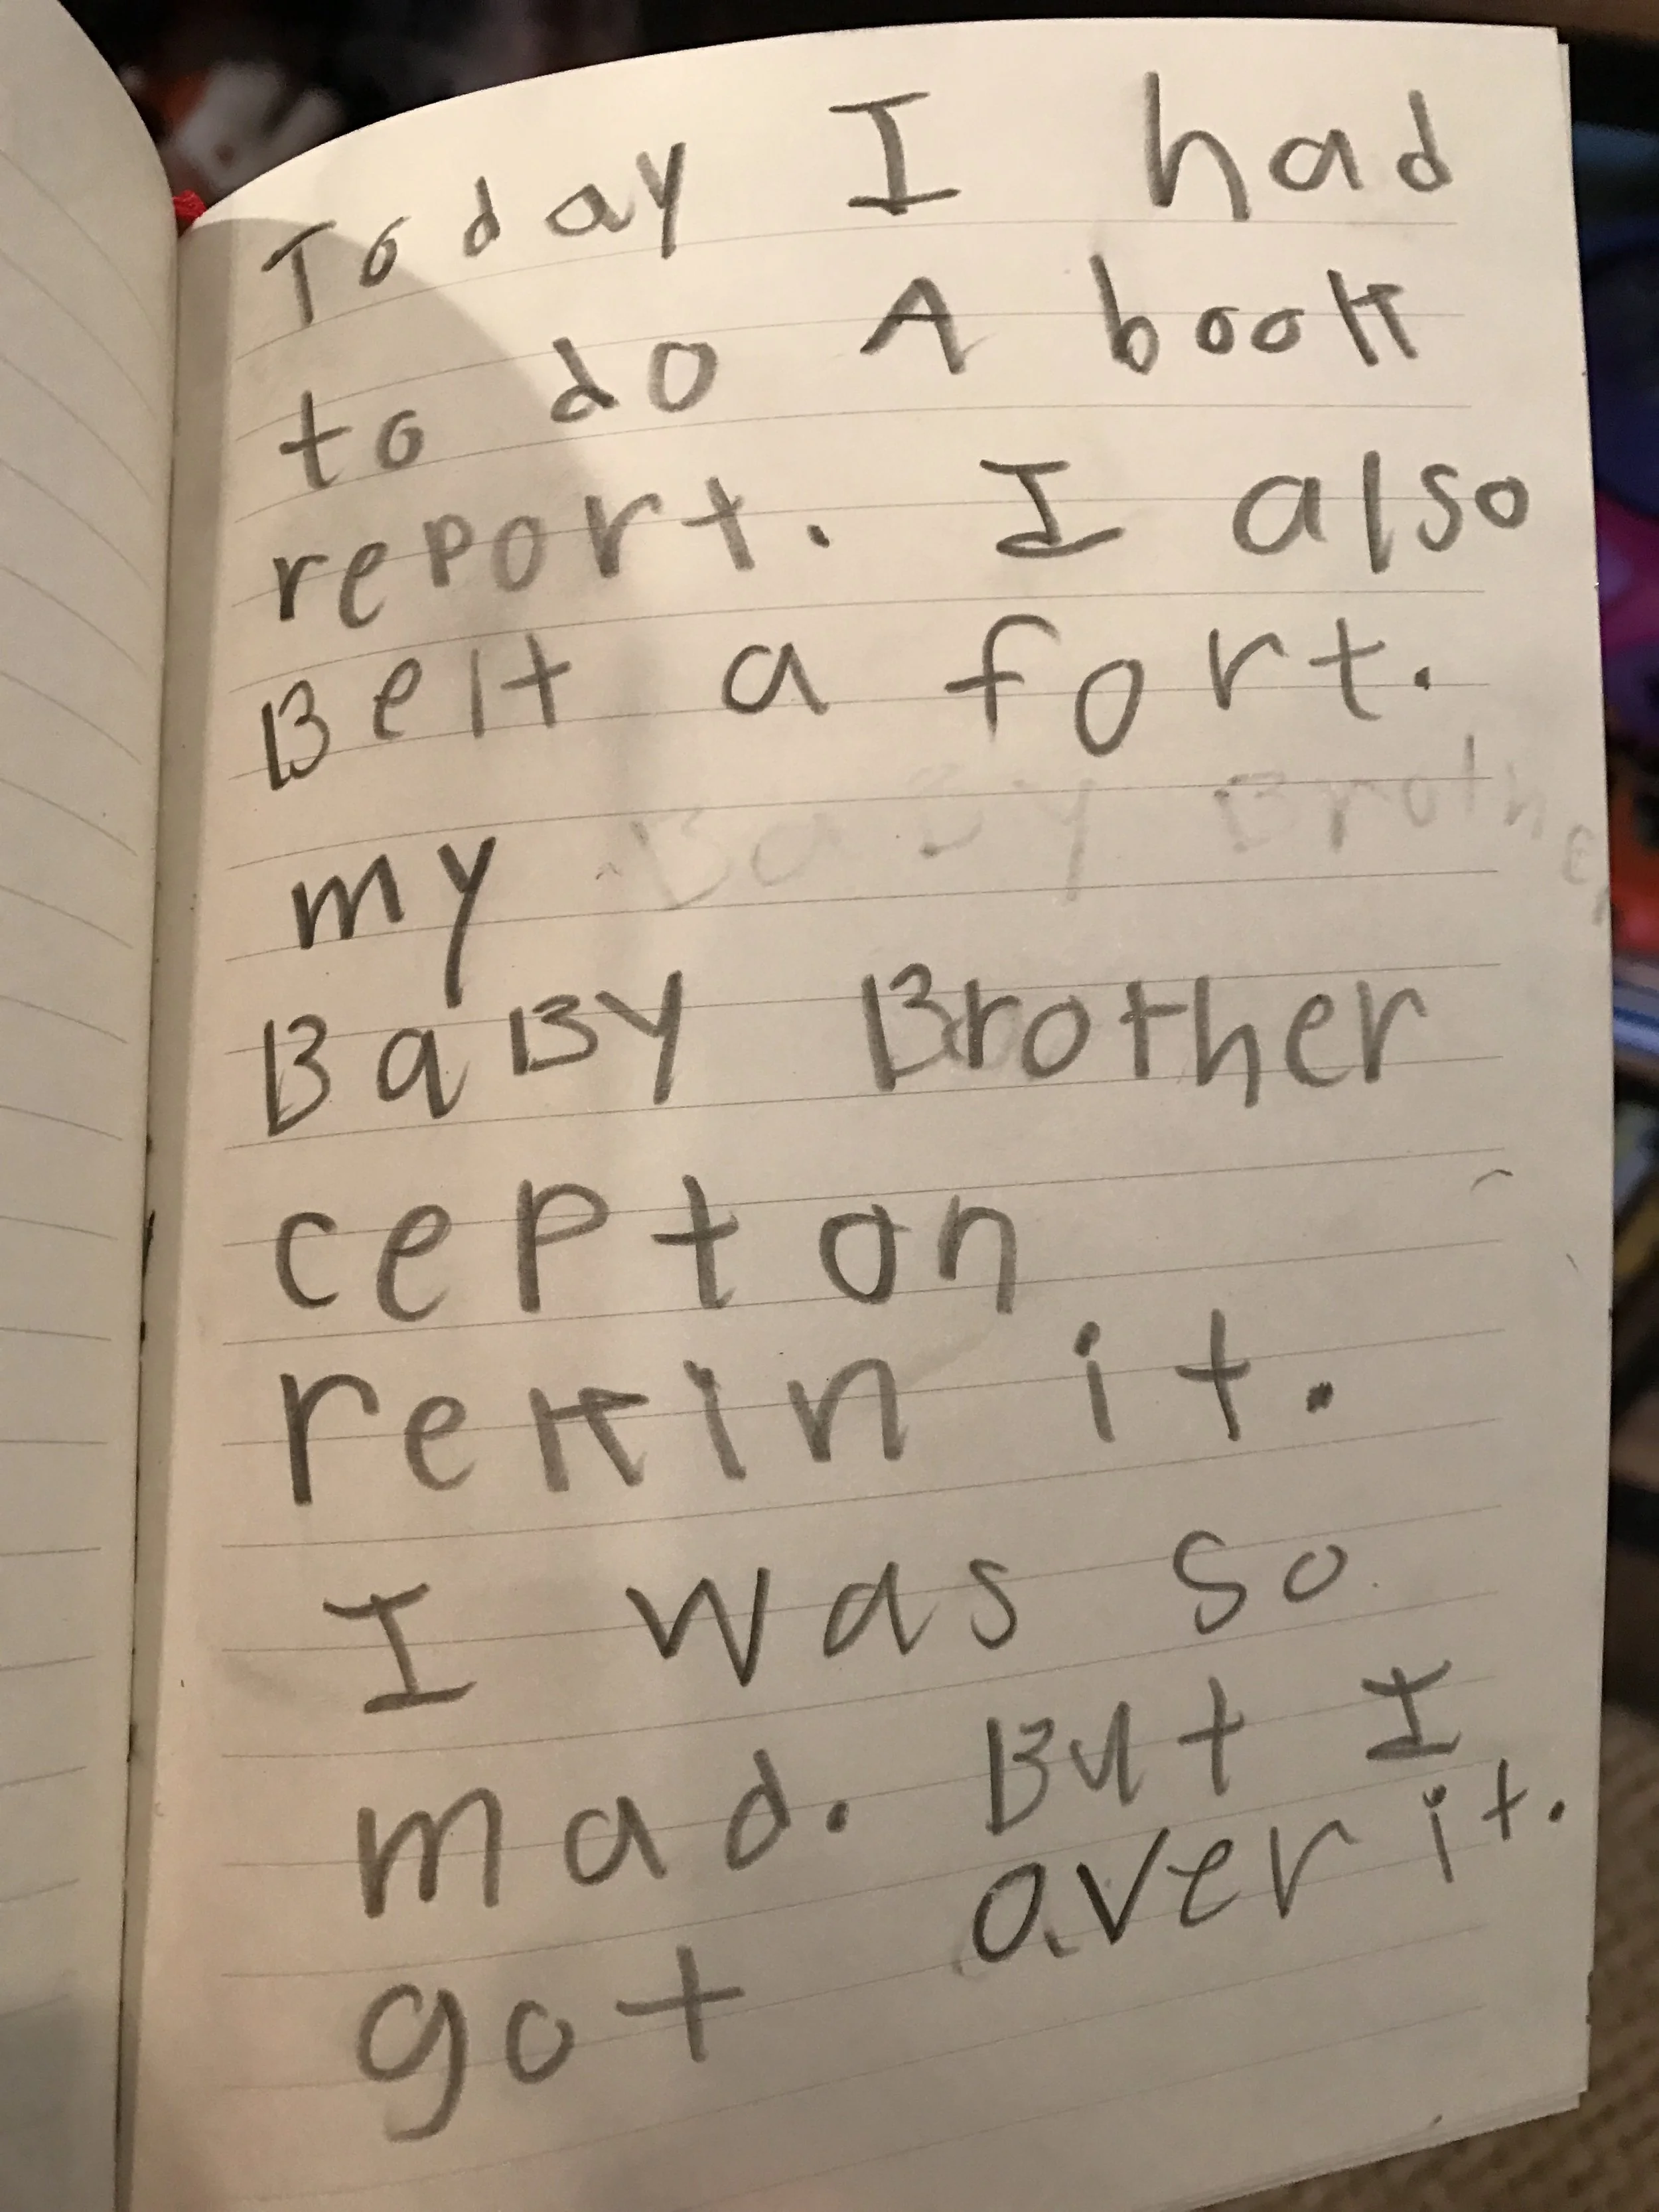 Today I had
to do A book
report. I also
Belt a fort.
my Baby Brother
BaBy Brother
cept on
rekin it.
I was so
mad. But I
got over it.